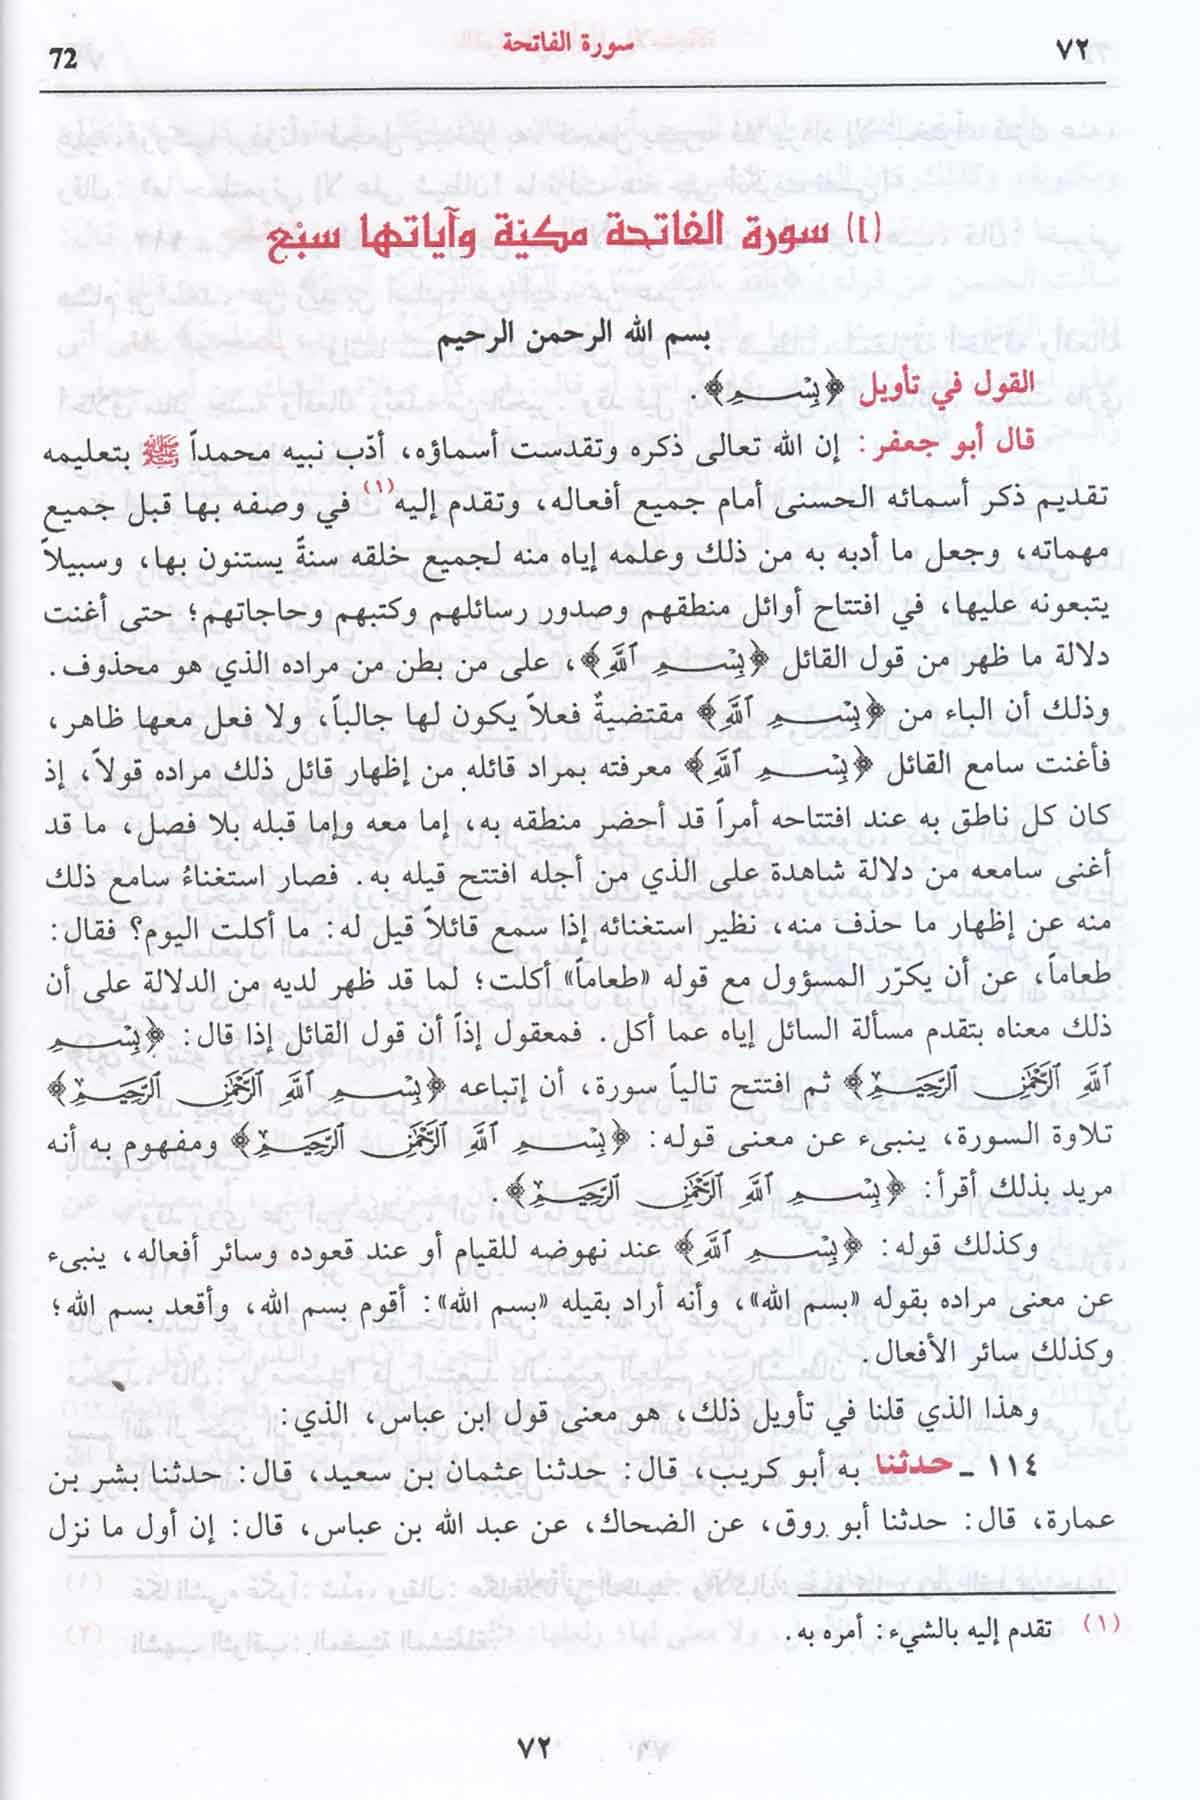 ٧٢ سورة الفاتحة 72
(١) سورة الفاتحة مكيّة وآياتها سبْع
بسم الله الرحمن الرحيم
القول في تأويل ﴿بِسْمِ﴾.
قال أبو جعفر: إن الله تعالى ذكره وتقدست أسماؤه، أدّب نبيه محمداً ﷺ بتعليمه
تقديم ذكر أسمائه الحسنى أمام جميع أفعاله، وتقدم إليه(١) في وصفه بها قبل جميع
مهماته، وجعل ما أدبه به من ذلك وعلمه إياه منه لجميع خلقه سنةً يستنون بها، وسبيلاً
يتبعونه عليها، في افتتاح أوائل منطقهم وصدور رسائلهم وكتبهم وحاجاتهم؛ حتى أغنت
دلالة ما ظهر من قول القائل ﴿بِسْمِ ٱللَّهِ﴾، على من بطن من مراده الذي هو محذوف.
وذلك أن الباء من ﴿بِسْمِ ٱللَّهِ﴾ مقتضيةٌ فعلاً يكون لها جالباً، ولا فعل معها ظاهر،
فأغنت سامع القائل ﴿بِسْمِ ٱللَّهِ﴾ معرفته بمراد قائله من إظهار قائل ذلك مراده قولاً، إذ
كان كل ناطق به عند افتتاحه أمراً قد أحضر منطقه به، إما معه وإما قبله بلا فصل، ما قد
أغنى سامعه من دلالة شاهدة على الذي من أجله افتتح قيله به. فصار استغناءُ سامع ذلك
منه عن إظهار ما حذف منه، نظير استغنائه إذا سمع قائلاً قيل له: ما أكلت اليوم؟ فقال:
طعاماً، عن أن يكرّر المسؤول مع قوله «طعاماً» أكلت؛ لما قد ظهر لديه من الدلالة على أن
ذلك معناه بتقدم مسألة السائل إياه عما أكل. فمعقول إذاً أن قول القائل إذا قال: ﴿بِسْمِ
ٱللَّهِ ٱلرَّحْمَٰنِ ٱلرَّحِيمِ﴾ ثم افتتح تالياً سورة، أن إتباعه ﴿بِسْمِ ٱللَّهِ ٱلرَّحْمَٰنِ ٱلرَّحِيمِ﴾
تلاوة السورة، ينبىء عن معنى قوله: ﴿بِسْمِ ٱللَّهِ ٱلرَّحْمَٰنِ ٱلرَّحِيمِ﴾ ومفهوم به أنه
مريد بذلك أقرأ: ﴿بِسْمِ ٱللَّهِ ٱلرَّحْمَٰنِ ٱلرَّحِيمِ﴾.
وكذلك قوله: ﴿بِسْمِ ٱللَّهِ﴾ عند نهوضه للقيام أو عند قعوده وسائر أفعاله، ينبىء
عن معنى مراده بقوله «بسم الله»، وأنه أراد بقيله «بسم الله»: أقوم بسم الله، وأقعد بسم الله؛
وكذلك سائر الأفعال.
وهذا الذي قلنا في تأويل ذلك، هو معنى قول ابن عباس، الذي:
١١٤ ـ حدثنا به أبو كريب، قال: حدثنا عثمان بن سعيد، قال: حدثنا بشر بن
عمارة، قال: حدثنا أبو روق، عن الضحاك، عن عبد الله بن عباس، قال: إن أول ما نزل
(١) تقدم إليه بالشيء: أمره به.
٧٢